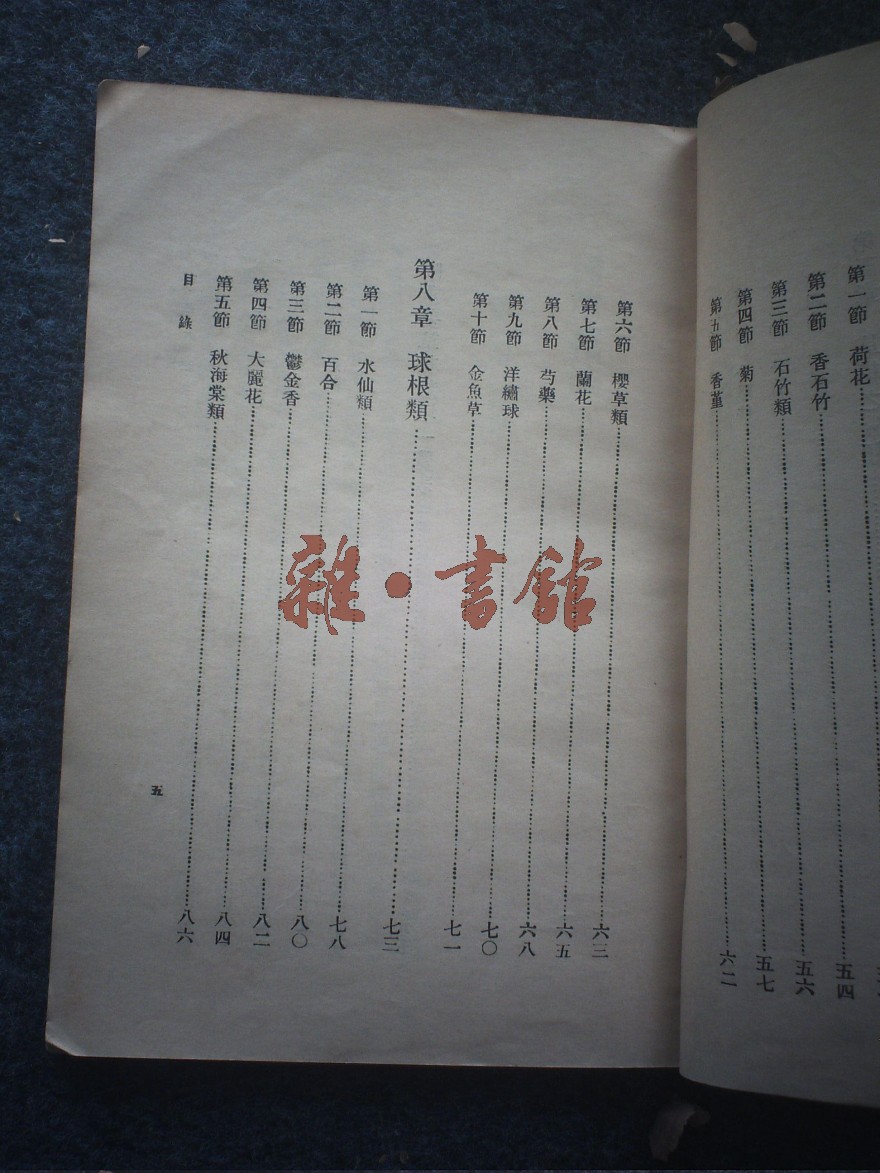 第一節 荷花
第二節 香石竹 五四
第三節 石竹類 五六
第四節 菊 五七
第五節 香菫 六二
第六節 櫻草類 六三
第七節 蘭花 六五
第八節 芍藥 六八
第九節 洋繡球 七〇
第十節 金魚草 七一
第八章 球根類 七三
第一節 水仙類 七八
第二節 百合 八〇
第三節 鬱金香 八二
第四節 大麗花 八四
第五節 秋海棠類 八六
目錄
五
雜·書館